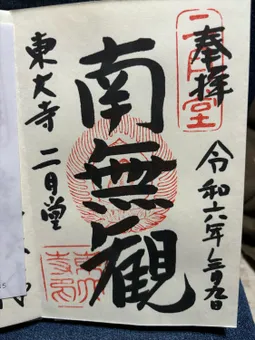 奉拝
二月堂
令和六年三月九日
南無観
東大寺 二月堂